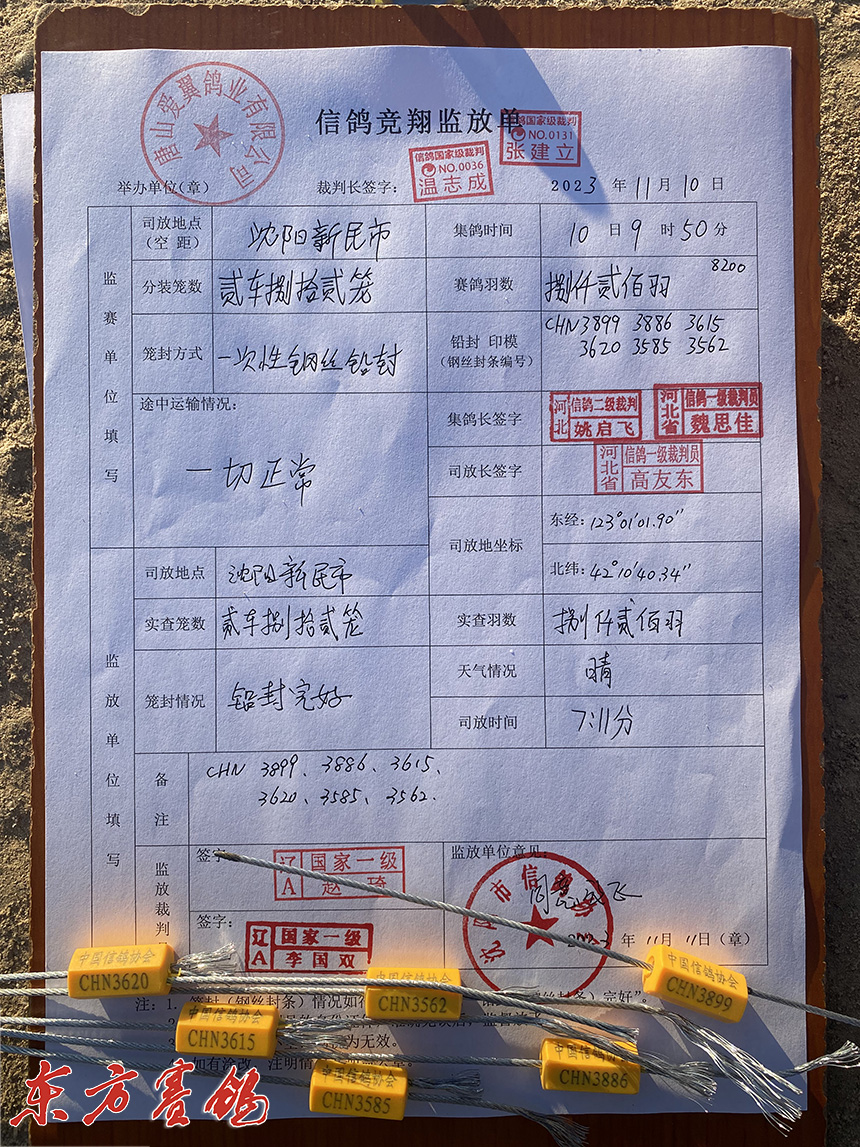 唐山爱翼鸽业有限公司
信鸽竞翔监放单
信鸽国家级裁判
NO.0131
张建立
信鸽国家级裁判
NO.0036
温志成
举办单位(章)
裁判长签字：
2023 年 11 月 10 日
监赛单位填写
司放地点
(空 距)
沈阳新民市
集鸽时间
10 日 9 时 50 分
分装笼数
贰车捌拾贰笼
赛鸽羽数
捌仟贰佰羽
8200
笼封方式
一次性钢丝铅封
铅封 印模
(钢丝封条编号)
CHN3899 3886 3615
3620 3585 3562
途中运输情况：
一切正常
集鸽长签字
河北
信鸽二级裁判
姚启飞
河北省
信鸽一级裁判员
魏思佳
司放长签字
河北省
信鸽一级裁判员
高友东
司放地坐标
东经：123°01'01.90"
北纬：42°10'40.34"
监放单位填写
司放地点
沈阳新民市
实查笼数
贰车捌拾贰笼
实查羽数
捌仟贰佰羽
笼封情况
铅封完好
天气情况
晴
司放时间
7:11分
备注
CHN 3899、3886、3615、
3620、3585、3562.
监放裁判
签字
辽A
国家一级
赵琦
签字：
辽A
国家一级
李国双
监放单位意见：
市信鸽
年 11月 11日（章）
中国信鸽协会
CHN3620
中国信鸽协会
CHN3562
中国信鸽协会
CHN3899
中国信鸽协会
CHN3615
中国信鸽协会
CHN3886
中国信鸽协会
CHN3585
注：1.
(钢丝封条) 情况如
完好"。
为无效。
如有涂改
注明情
东方赛鸽